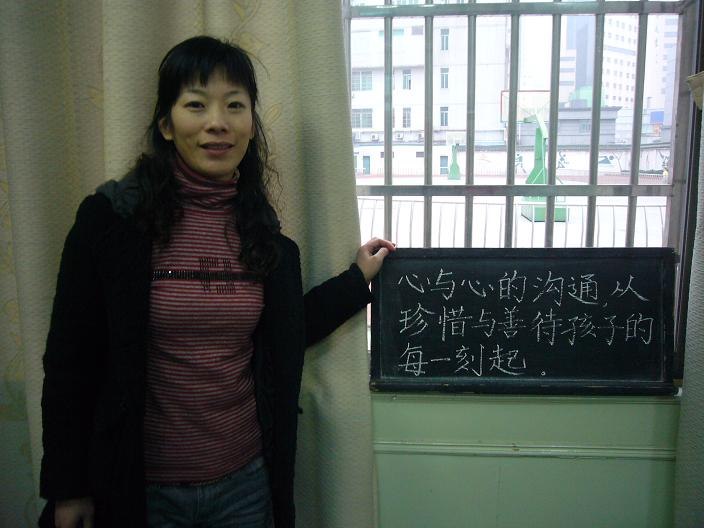 心与心的沟通,从
珍惜与善待孩子的
每一刻起。